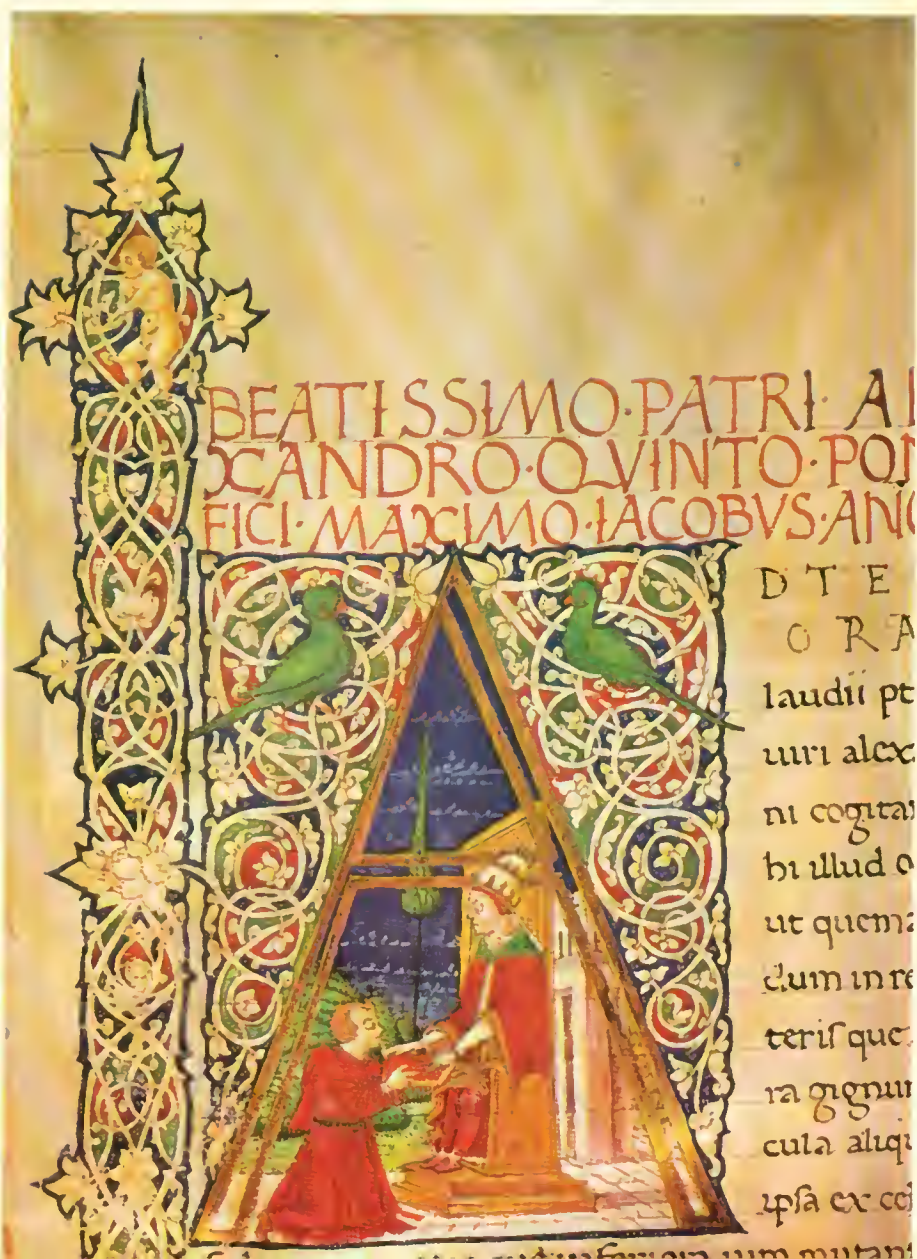 BEATISSIMO·PATRI·A
XANDRO·QVINTO·PON
FICI·MAXIMO·IACOBVS·ANG
D T E
O R A
laudii pt
uiri alex
ni cogita
bi illud o
ut quema
dum in re
teris que
ra gignun
cula aliq
ipsa ex